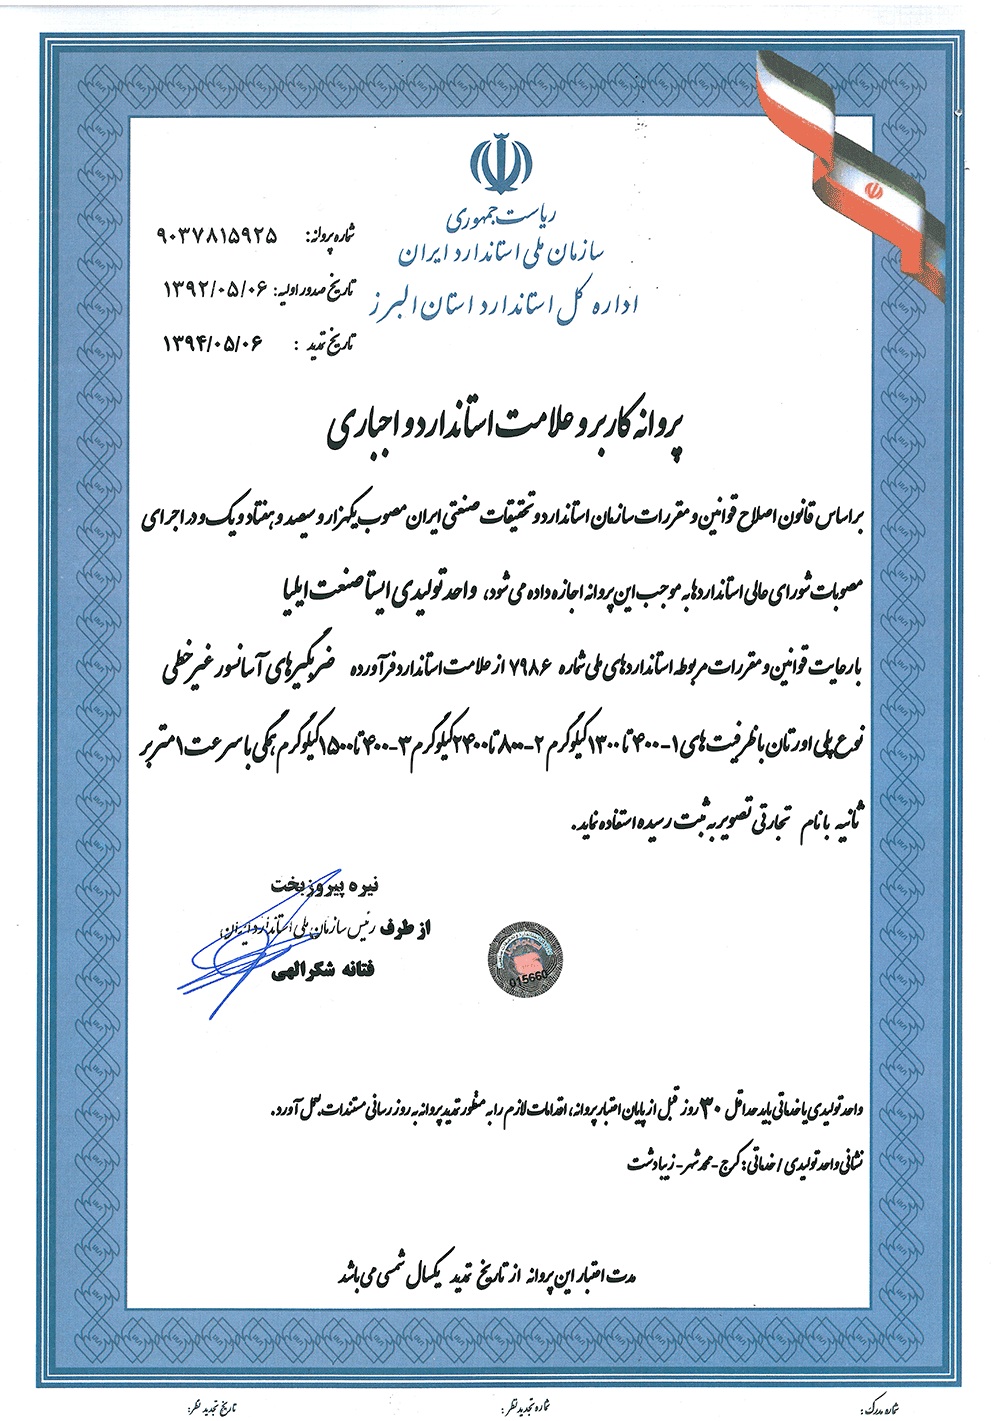 ریاست جمهوری
سازمان ملی استاندارد ایران
اداره کل استاندارد استان البرز
شماره پروانه: ۹۰۳۷۸۱۵۹۲۵
تاریخ صدور اولیه: ۱۳۹۲/۰۵/۰۶
تاریخ تمدید : ۱۳۹۴/۰۵/۰۶
پروانه کاربرد علامت استاندارد اجباری
براساس قانون اصلاح قوانین و مقررات سازمان استاندارد و تحقیقات صنعتی ایران مصوب یکهزار و سیصد و هفتاد و یک و در اجرای
مصوبات شورای عالی استانداردها به موجب این پروانه اجازه داده می شود، واحد تولیدی ایستا صنعت ایلیا
با رعایت قوانین و مقررات مربوطه استانداردهای ملی شماره ۷۹۸۶ از علامت استاندارد فرآورده ضربگیرهای آسانسور غیرخطی
نوع پلی اورتان با ظرفیت های ۱-۴۰۰ تا ۱۳۰۰کیلوگرم ۲-۸۰۰ تا ۲۴۰۰کیلوگرم ۳-۴۰۰ تا ۱۵۰۰کیلوگرم همگی با سرعت ۱ متر بر
ثانیه با نام تجارتی تصویر به ثبت رسیده استفاده نماید.
نیره پیروزبخت
از طرف رئیس سازمان ملی استاندارد ایران
فتانه شکرالهی
015660
واحد تولیدی یا خدماتی باید حداقل ۳۰ روز قبل از پایان اعتبار پروانه، اقدامات لازم را به منظور تمدید پروانه به روز رسانی مستندات، بعمل آورد.
نشانی واحد تولیدی / خدماتی: کرج-محمدشهر-زیبادشت
مدت اعتبار این پروانه از تاریخ تمدید یکسال شمسی می باشد
شماره مدرک:
شماره تجدید نظر:
تاریخ تجدید نظر: